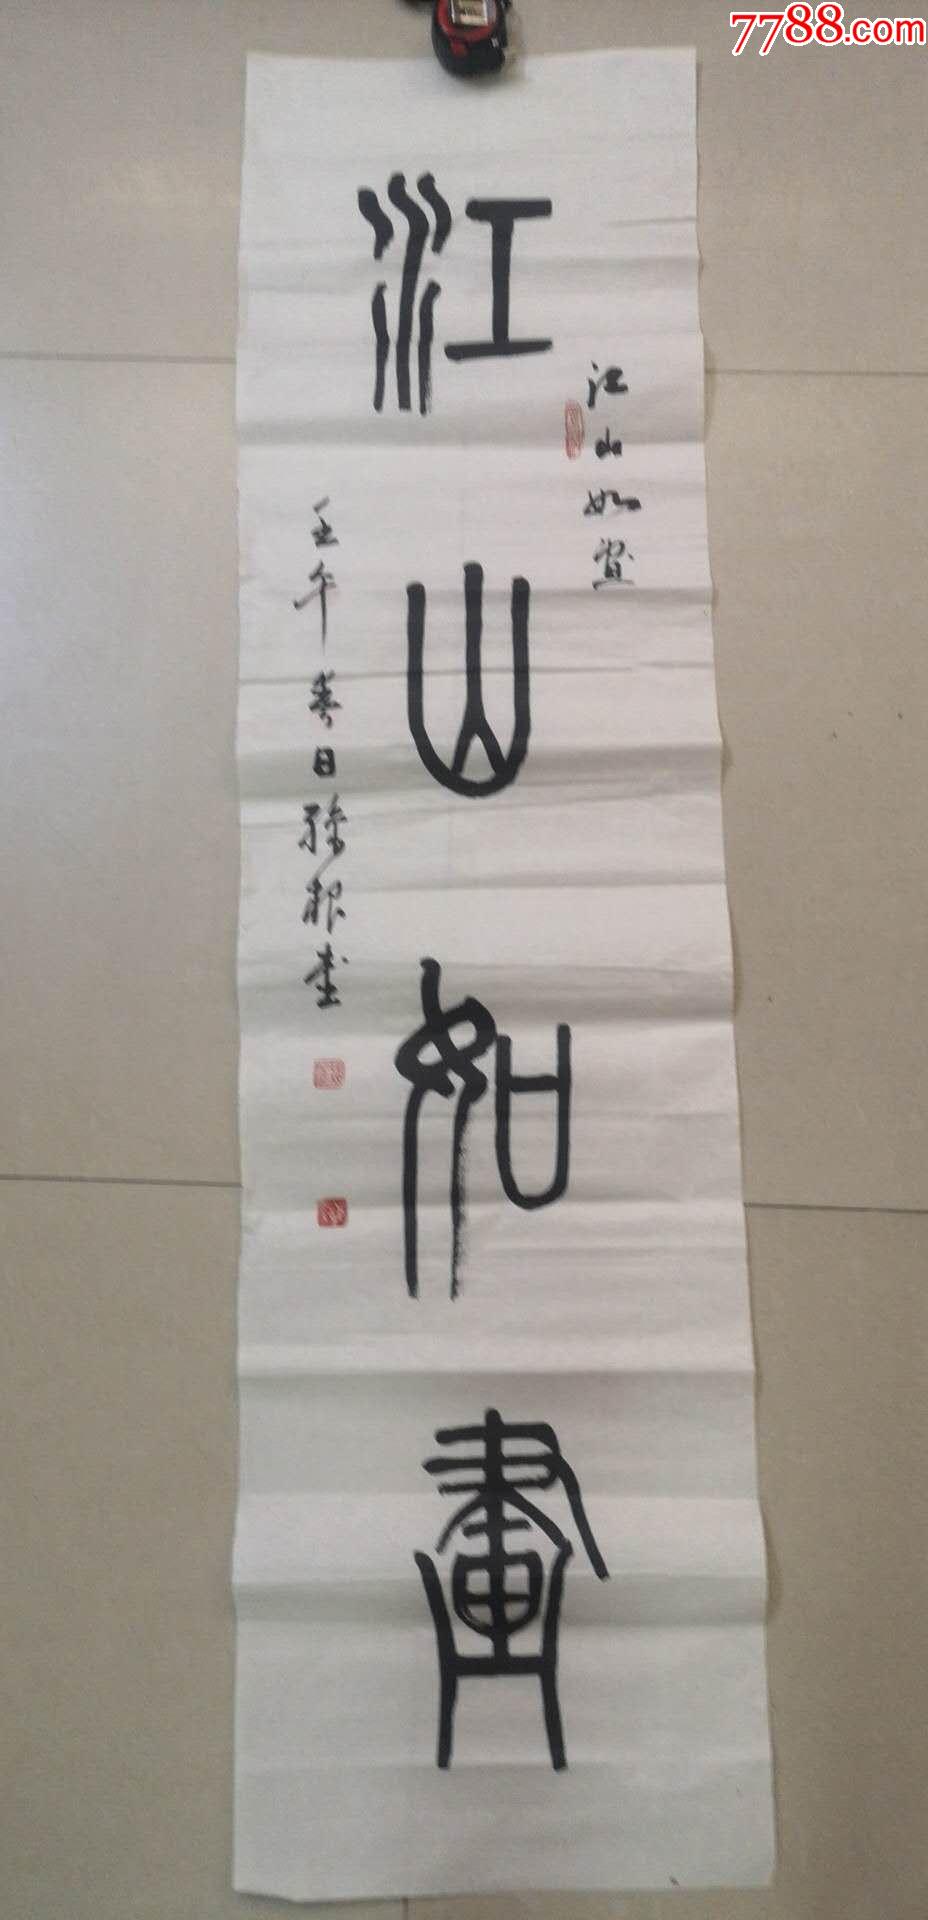 7788.com
江山如畫
江山如畫
壬午春日孫根書